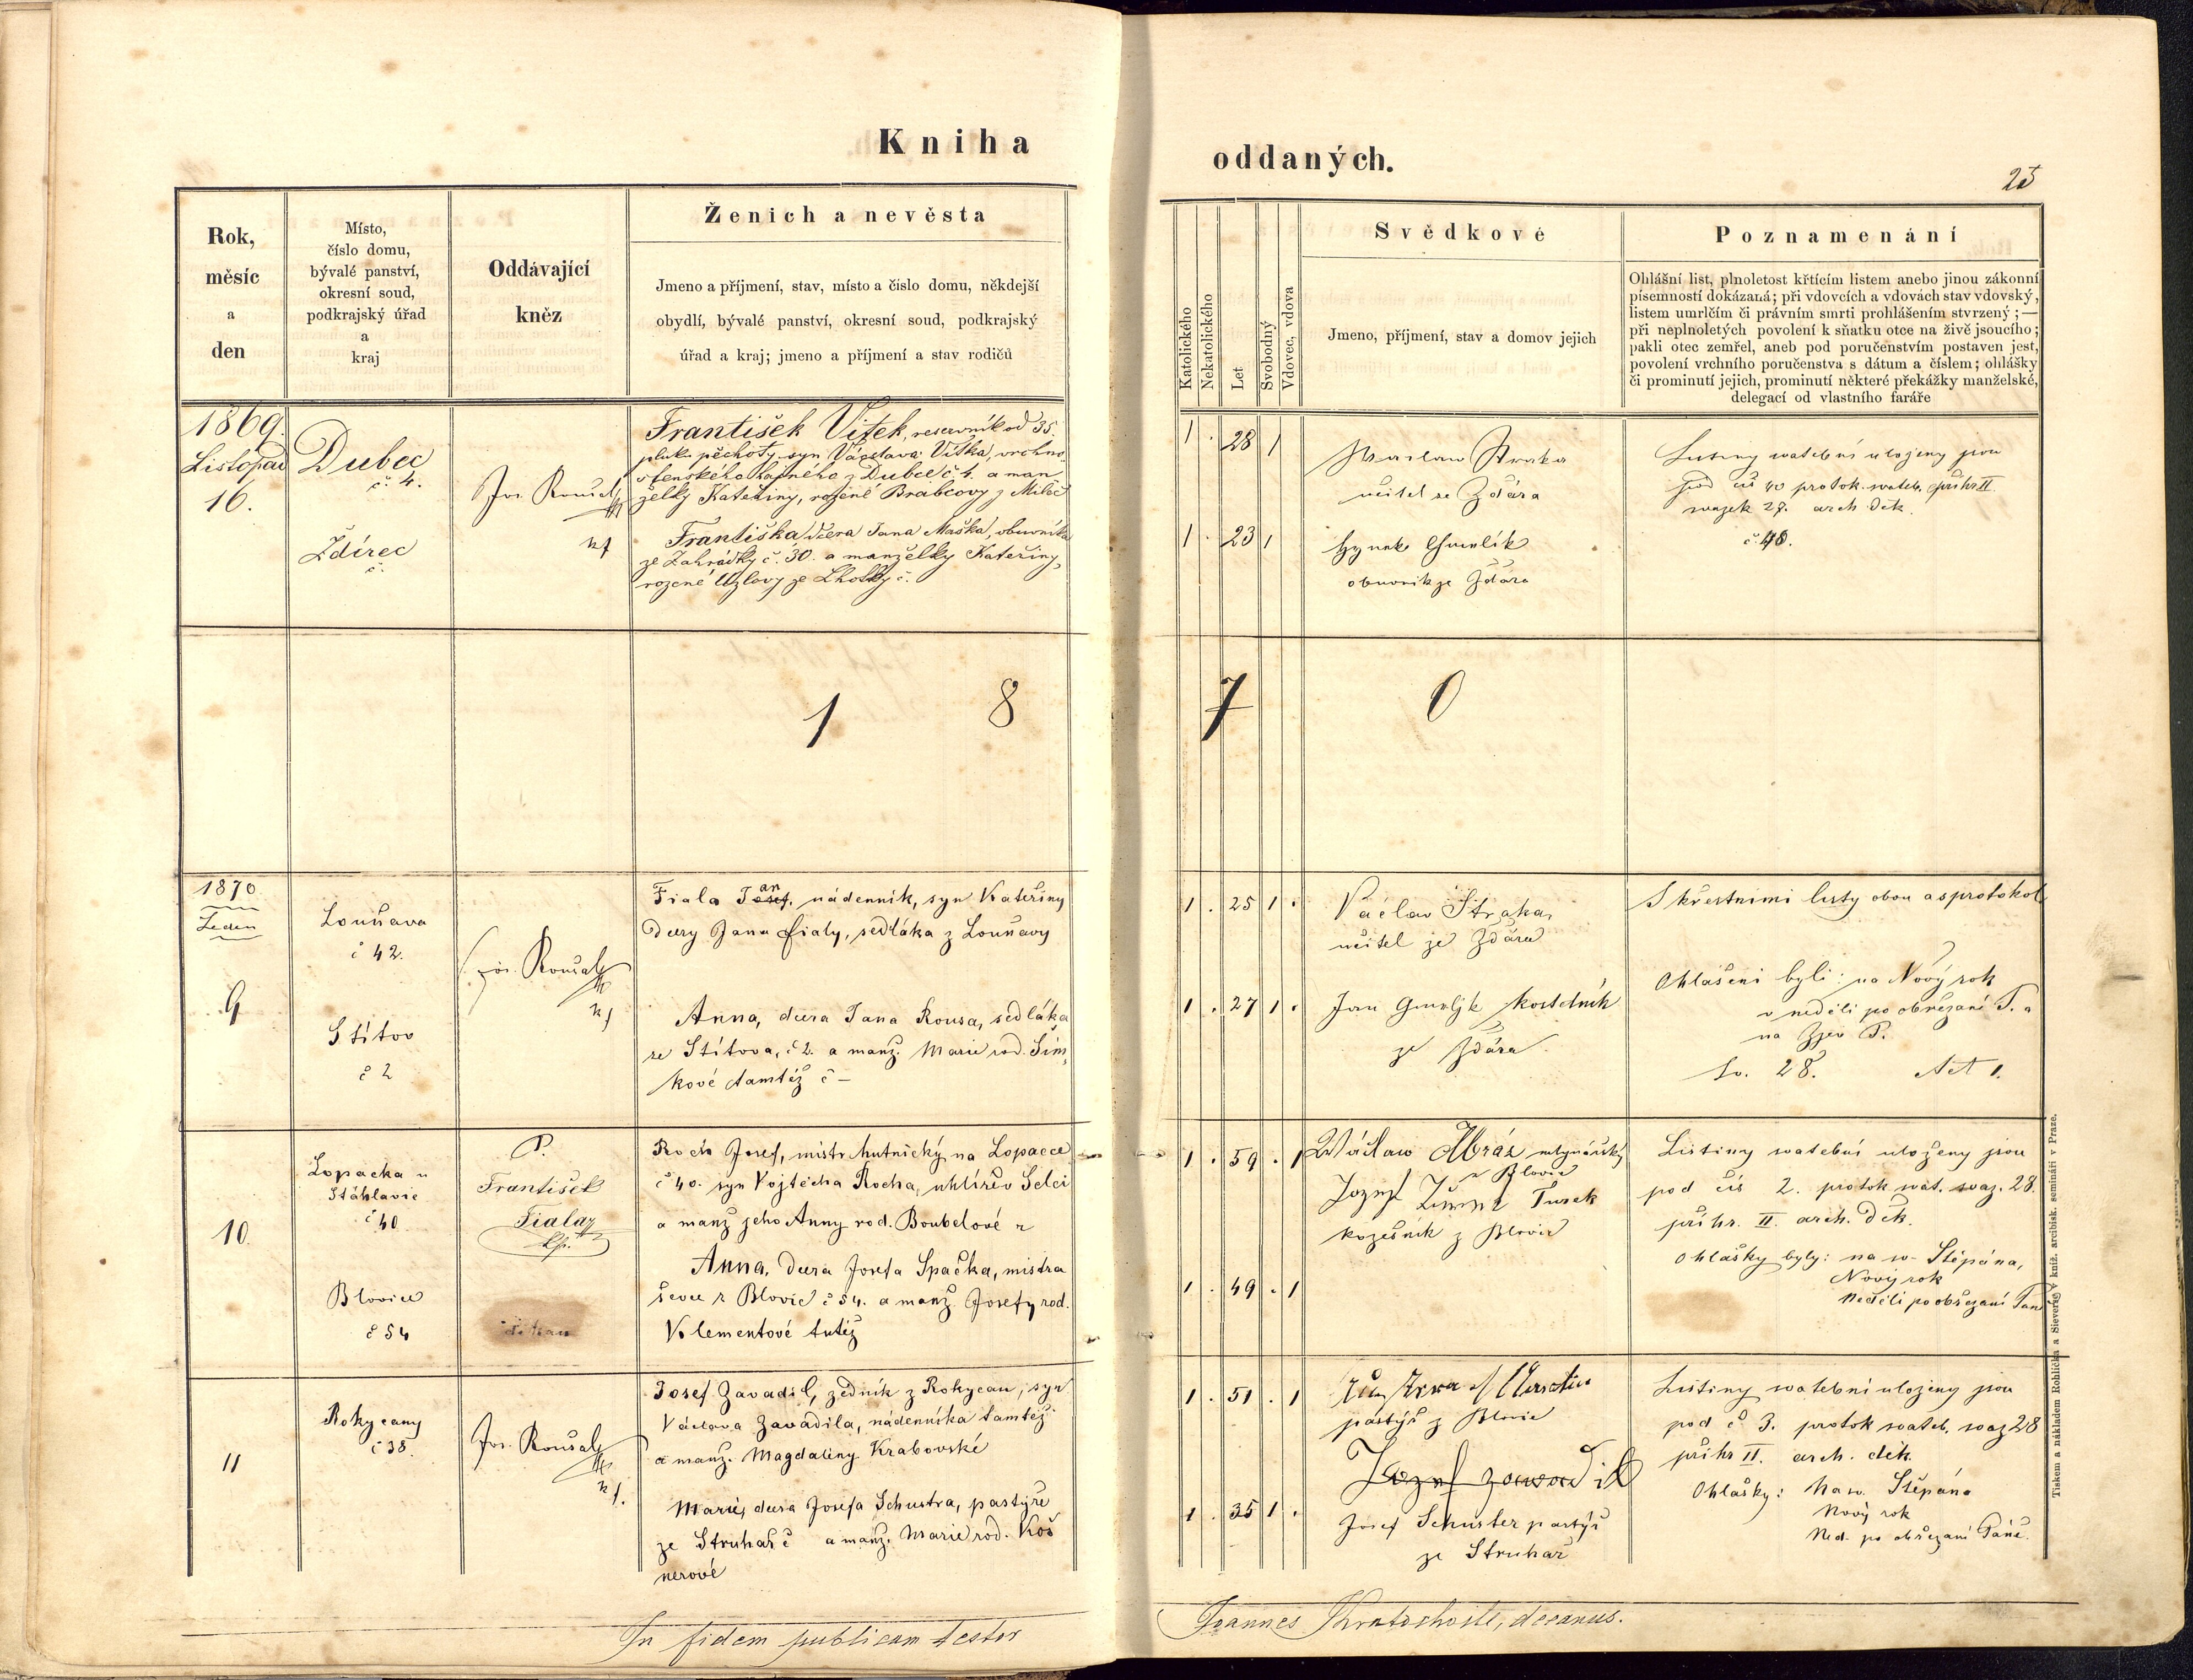 Kniha
oddaných.
25
Rok,
měsíc
a
den
Místo,
číslo domu,
bývalé panství,
okresní soud,
podkrajský úřad
a
kraj
Oddávající
kněz
Ženich a nevěsta
Jmeno a příjmení, stav, místo a číslo domu, někdejší
obydlí, bývalé panství, okresní soud, podkrajský
úřad a kraj; jmeno a příjmení a stav rodičů
Katolického
Nekatolického
Let
Svobodný
Vdovec, vdova
Svědkové
Jmeno, příjmení, stav a domov jejich
Poznamenání
Ohlášní list, plnoletost křtícím listem anebo jinou zákonní
písemností dokázaná; při vdovcích a vdovách stav vdovský,
listem umrlčím či právním smrti prohlášením stvrzený; —
při neplnoletých povolení k sňatku otce na živě jsoucího;
pakli otec zemřel, aneb pod poručenstvím postaven jest,
povolení vrchního poručenstva s dátum a číslem; ohlášky
či prominutí jejich, prominutí některé překážky manželské,
delegací od vlastního faráře
1869.
Listopad
16.
Dubec
č. 4.
Ždírec
č.
Jos. Roušal
František Vítek, reservník od 35.
pluk. pěchoty, syn Václava Vítka, vrchno
stenského hajného z Dubce č. 4. a man
želky Kateřiny, rozené Brabcovy z Miloč
Františka dcera Jana Maška, obuvníka
ze Zahrádky č. 30. a manželky Kateřiny,
rozené Uzlovy ze Lhotky č.
1 . 28 1
1 . 23 1
Straka
učitel ze Ždára
Hynek Chmelík
obuvník ze Ždára
Listiny svatební uloženy jsou
pod čís 40 protok. svateb. přihr II.
svazek 27. arch děk.
č. 40.
1 8
7 0
1870.
Leden
9
Louňava
č 42.
Štítov
č 2
Jos. Roušal
Fiala Josef, an nádenník, syn Kateřiny
dcery Jana Fialy, sedláka z Louňavy
Anna, dcera Jana Rousa, sedláka
ze Štítova, č 2. a manž. Marie rod. Šim
kové tamtéž č –
1 . 25 1 .
1 . 27 1 .
Václav Straka,
učitel ze Ždára
Jan Chmelík kostelník
ze Ždára.
S křestními listy obou a s protokol
Ohlášeni byli: na Nový rok
v neděli po obřezání P. a
na Zjev P.
Sv. 28. Act 1.
10.
Lopacka u
Štáhlavic
č 40
Blovice
č 54
P.
František
Fiala
děkan
Roch Josef, mistr hutnický na Lopacce
č 40. syn Vojtěcha Rocha, uhlíře v Selci
a manž jeho Anny rod. Boubelové z
Anna, dcera Josefa Spačka, mistra
ševce z Blovic č 54. a manž. Josefy rod.
Klementové tutéž
1 . 59 . 1
1 . 49 . 1
Wáclaw Obráz mlynářský
z Blovic
Turek
kožešník z Blovic
Listiny svatební uloženy jsou
pod čís 2. protok svat. svaz. 28.
přihr. II. arch. děk.
Ohlášky byly: na sv. Štěpána,
Nový rok
Neděli po obřezaní Pan
11
Rokycany
č 38.
Jos. Roušal
Josef Zavadil, zedník z Rokycan, syn
Václava Zavadila, nádenníka tamtéž
a manž. Magdaleny Krabovské
Marie, dcera Josefa Schustra, pastýře
ze Struhař č a manž. Marie rod. Koš
nerové
1 . 51 . 1
1 . 35 1 .
pastýř z Blovic
Jozef Zawadil
Josef Schuster pastýř
ze Struhař
Listiny svatební uloženy jsou
pod č 3. protok svateb. svaz 28
přihr II. arch. děk.
Ohlášky: Na sv. Štěpána
Nový rok
Ned. po obřezaní Páně.
In fidem publicam testor
Joannes Kratochvile, decanus.
Tiskem a nákladem Rohlíčka a Sieverse V kníž. arcibisk. semináři v Praze.